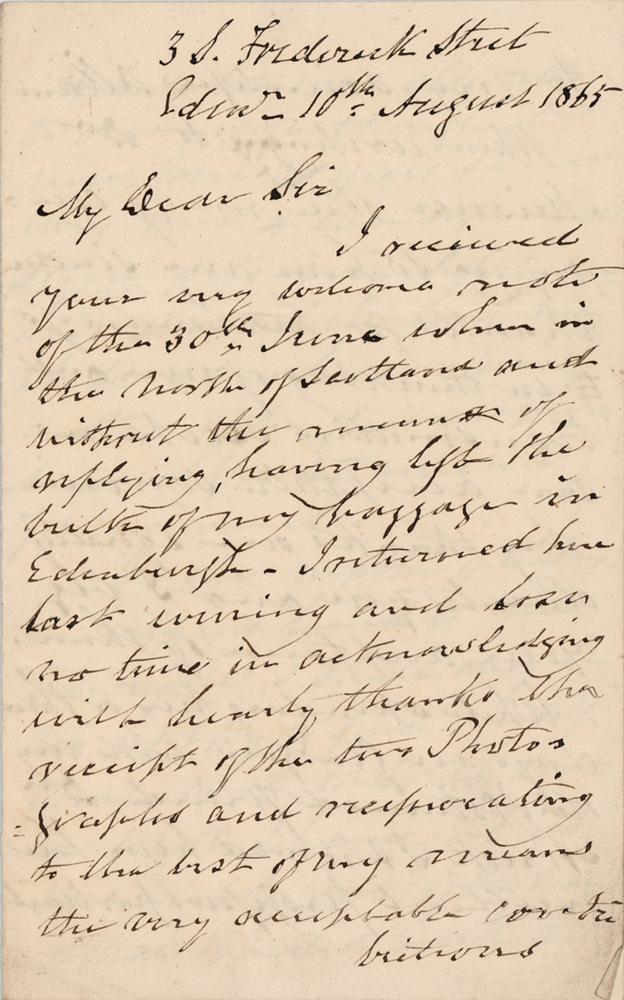 3 S. Frederick Street
Edinr. 10th August 1865
My Dear Sir
I received
your very welcome note
of the 30th June when in
the North of Scotland and
without the means of
replying, having left the
bulk of my baggage in
Edinburgh - I returned here
last evening and lose
no time in acknowledging
with hearty thanks the
receipt of the two Photo=
=graphs and reciprocating
to the best of my means
the very acceptable contri
butions